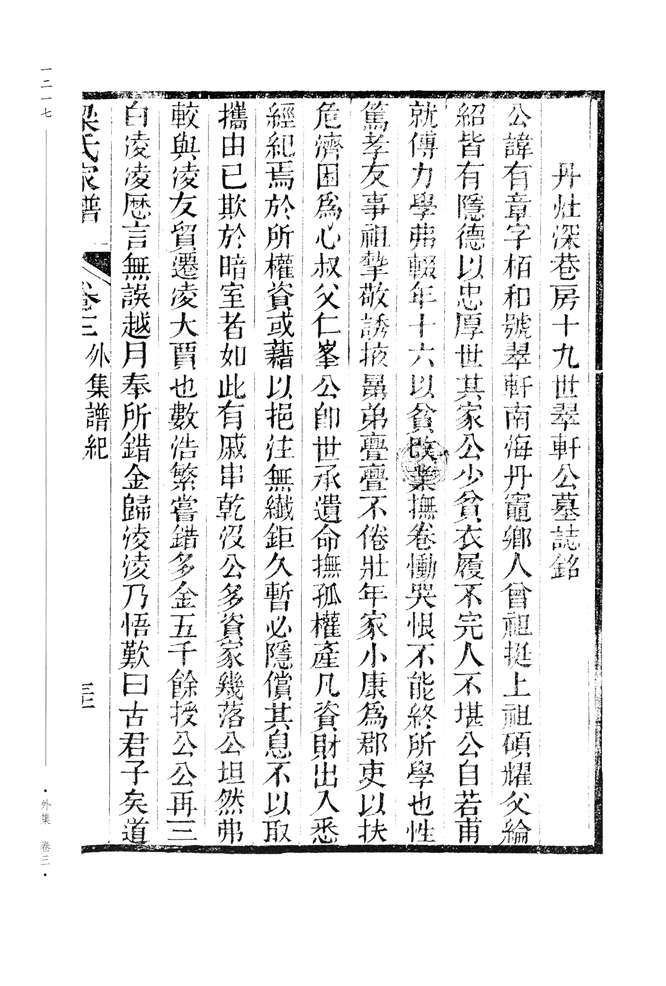 丹灶深巷房十九世翠軒公墓誌銘
公諱有章字栢和號翠軒南海丹竈鄉人曾祖挺上祖碩耀父綸
紹皆有隱德以忠厚世其家公少貧衣履不完人不堪公自若甫
就傅力學弗輟年十六以貧改業撫卷慟哭恨不能終所學也性
篤孝友事祖摯敬誘掖曧弟亹亹不倦壯年家小康爲郡吏以扶
危濟困爲心叔父仁峯公卽世承遺命撫孤權產凡資財出入悉
經紀焉於所權資或藉以挹注無纖鉅久暫必隱償其息不以取
攜由已欺於暗室者如此有戚串乾沒公多資家幾落公坦然弗
較與凌友貿遷凌大賈也數浩繁嘗錯多金五千餘授公公再三
白凌凌歷言無誤越月奉所錯金歸凌凌乃悟歎曰古君子矣道
梁氏家譜 卷三 外集譜紀 三
一二一七
·外集 卷三·